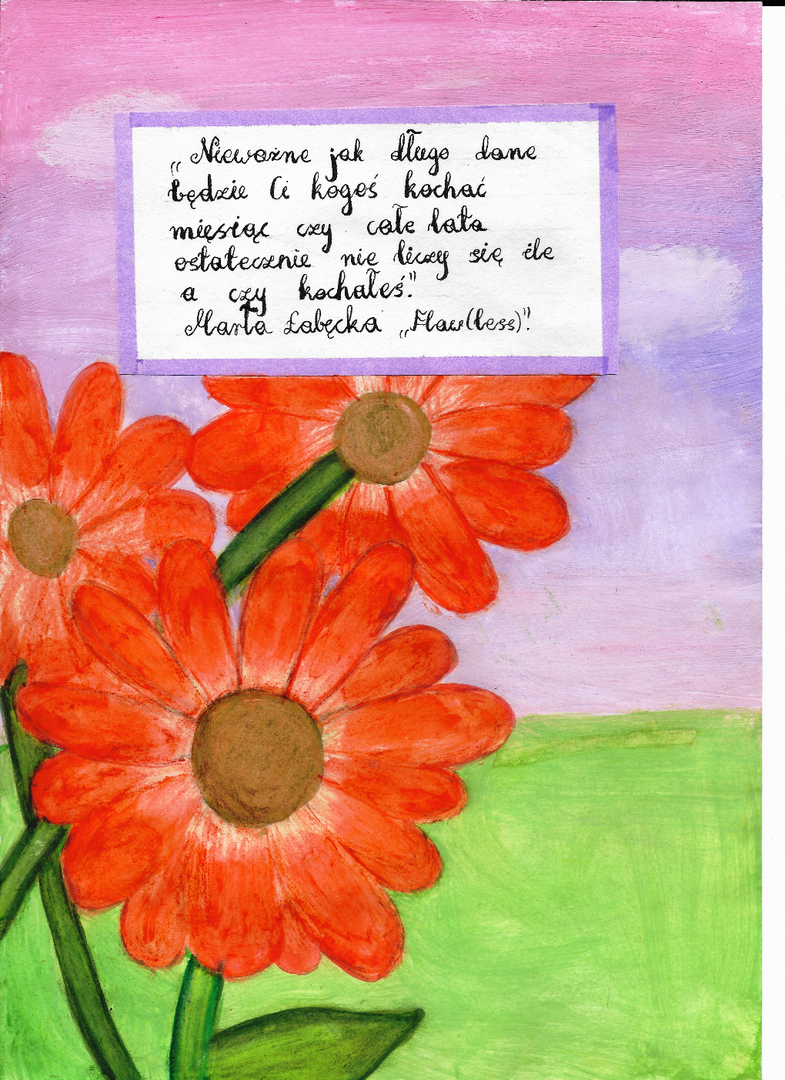 „Nieważne jak długo dane
będzie Ci kogoś kochać
miesiąc czy całe lata
ostatecznie nie liczy się ile
a czy kochałeś."
Marta Łabęcka „Flaw(less)".